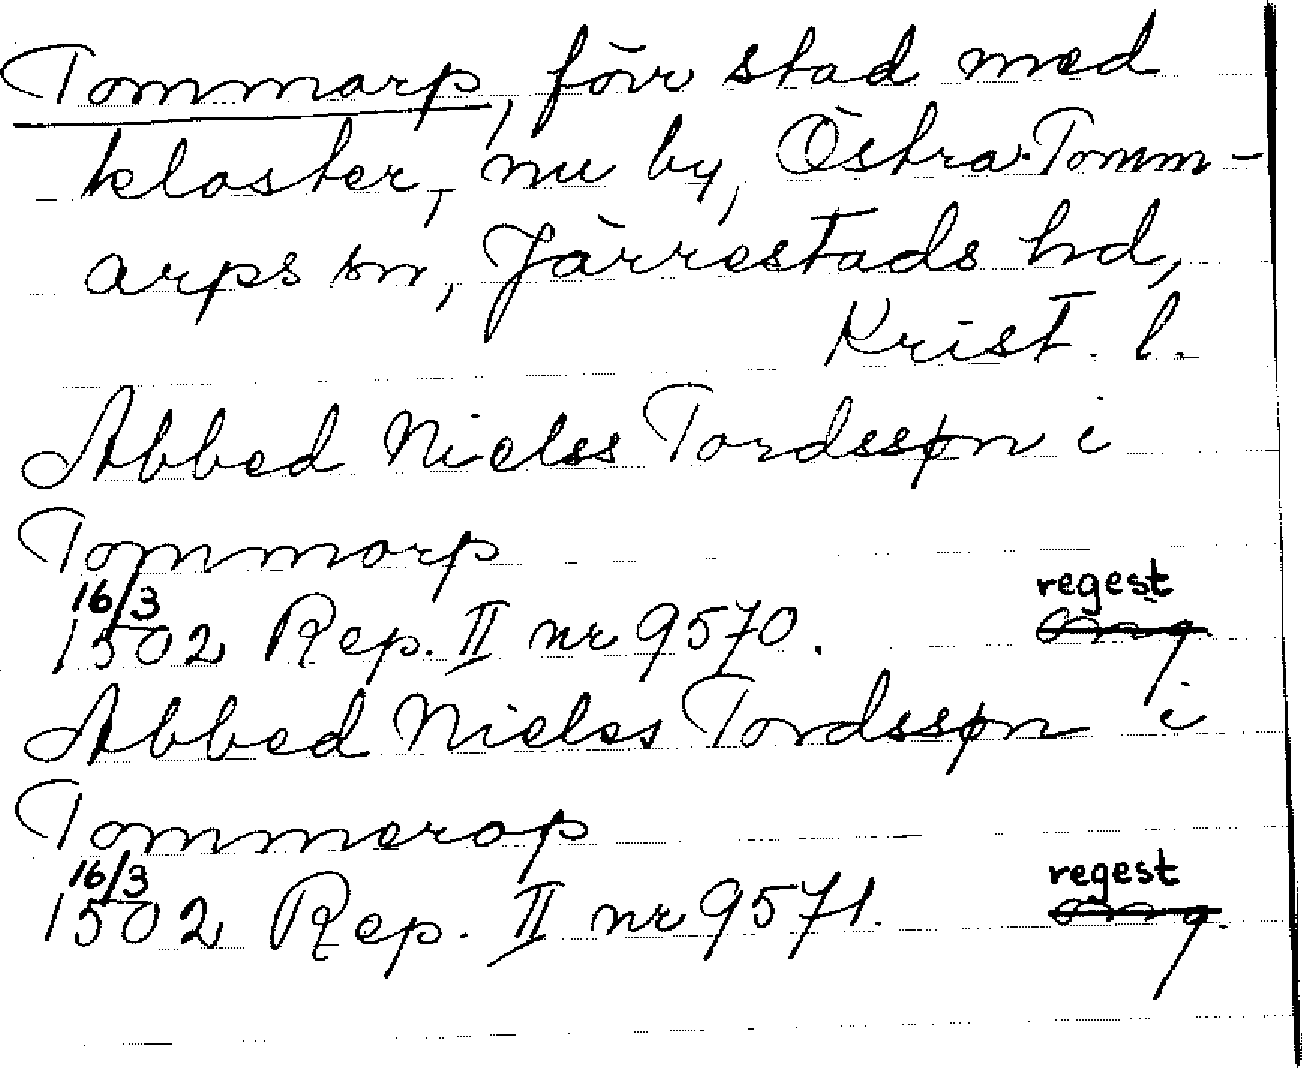 Tommarp, förr stad med
kloster, nu by, Östra Tomm-
arps sn, Järrestads hd,
Krist. l.
Abbed Nielss Tordssøn i
Tommorp
16/3 regest
1502 Rep. II nr 9570. omg
Abbed Nielss Tordssøn i
Tommerop
16/3 regest
1502 Rep. II nr 9571. omg.